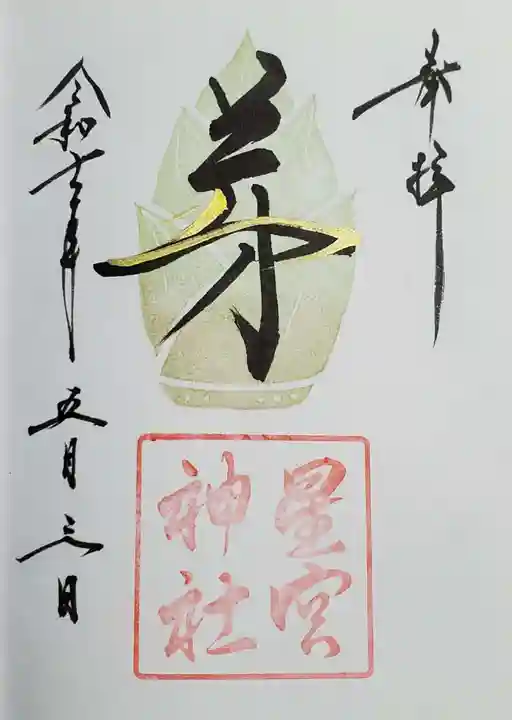 奉拝
芽
星宮
神社
令和六年五月三日